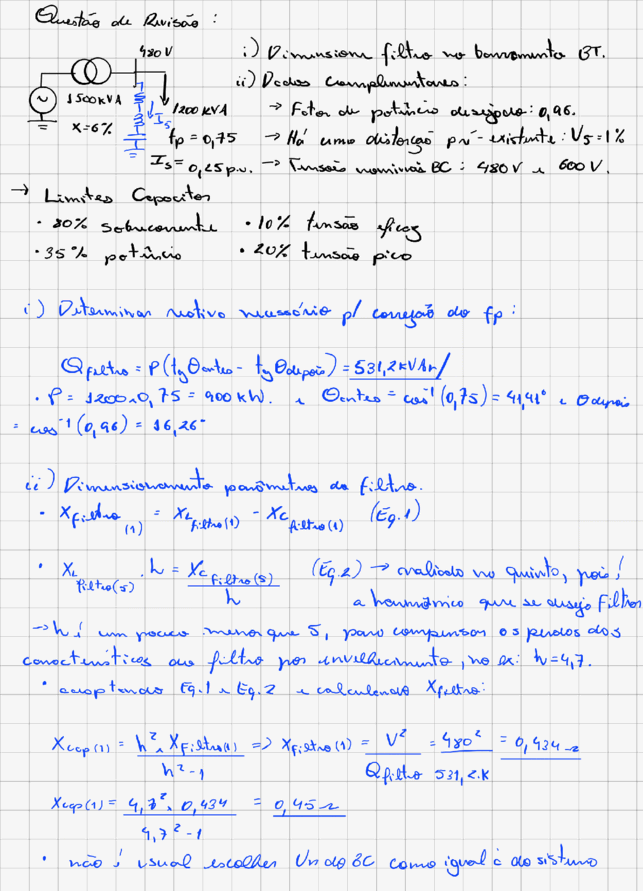 Questão de Revisão:
480 V
i) Dimensione filtro no barramento BT.
ii) Dados complementares:
1500 KVA
X=6%
I5
1200 KVA
fp = 0,75
I5 = 0,25 p.u.
→ Fator de potência desejado: 0,96.
→ Há uma distorção pré-existente: V5 = 1%
→ Tensões nominais BC: 480 V e 600 V.
→ Limites Capacitor
• 80% sobrecorrente • 10% tensão eficaz
• 35% potência • 20% tensão pico
i) Determinar reativo necessário p/ correção do fp:
Qfiltro = P(tgθantes - tgθdepois) = 531,2 kVAr/
• P = 1200 x 0,75 = 900 kW. e θantes = cos⁻¹(0,75) = 41,41° e θdepois
= cos⁻¹(0,96) = 16,26°
ii) Dimensionamento parâmetros do filtro.
• Xfiltro(1) = XLfiltro(1) - XCfiltro(1) (Eq.1)
• XLfiltro(5) . h = XCfiltro(5) / h (Eq.2) → avaliado no quinto, pois é
a harmônico que se deseja filtrar
→ h é um pouco menor que 5, para compensar os perdas dos
características do filtro por envelhecimento, no ex: h=4,7.
• acoplando Eq.1 e Eq.2 e calculando Xfiltro:
Xcap(1) = h² . Xfiltro(1) / h²-1 => Xfiltro(1) = V² / Qfiltro = 480² / 531,2.K = 0,434 Ω
Xcap(1) = 4,7² . 0,434 / 4,7² - 1 = 0,45 Ω
• não é usual escolher Vn do BC como igual à do sistema